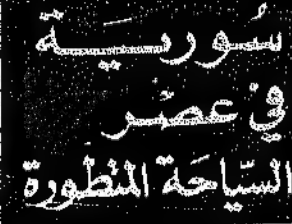 سُورية
في عصر
السّياحَة المنظورة